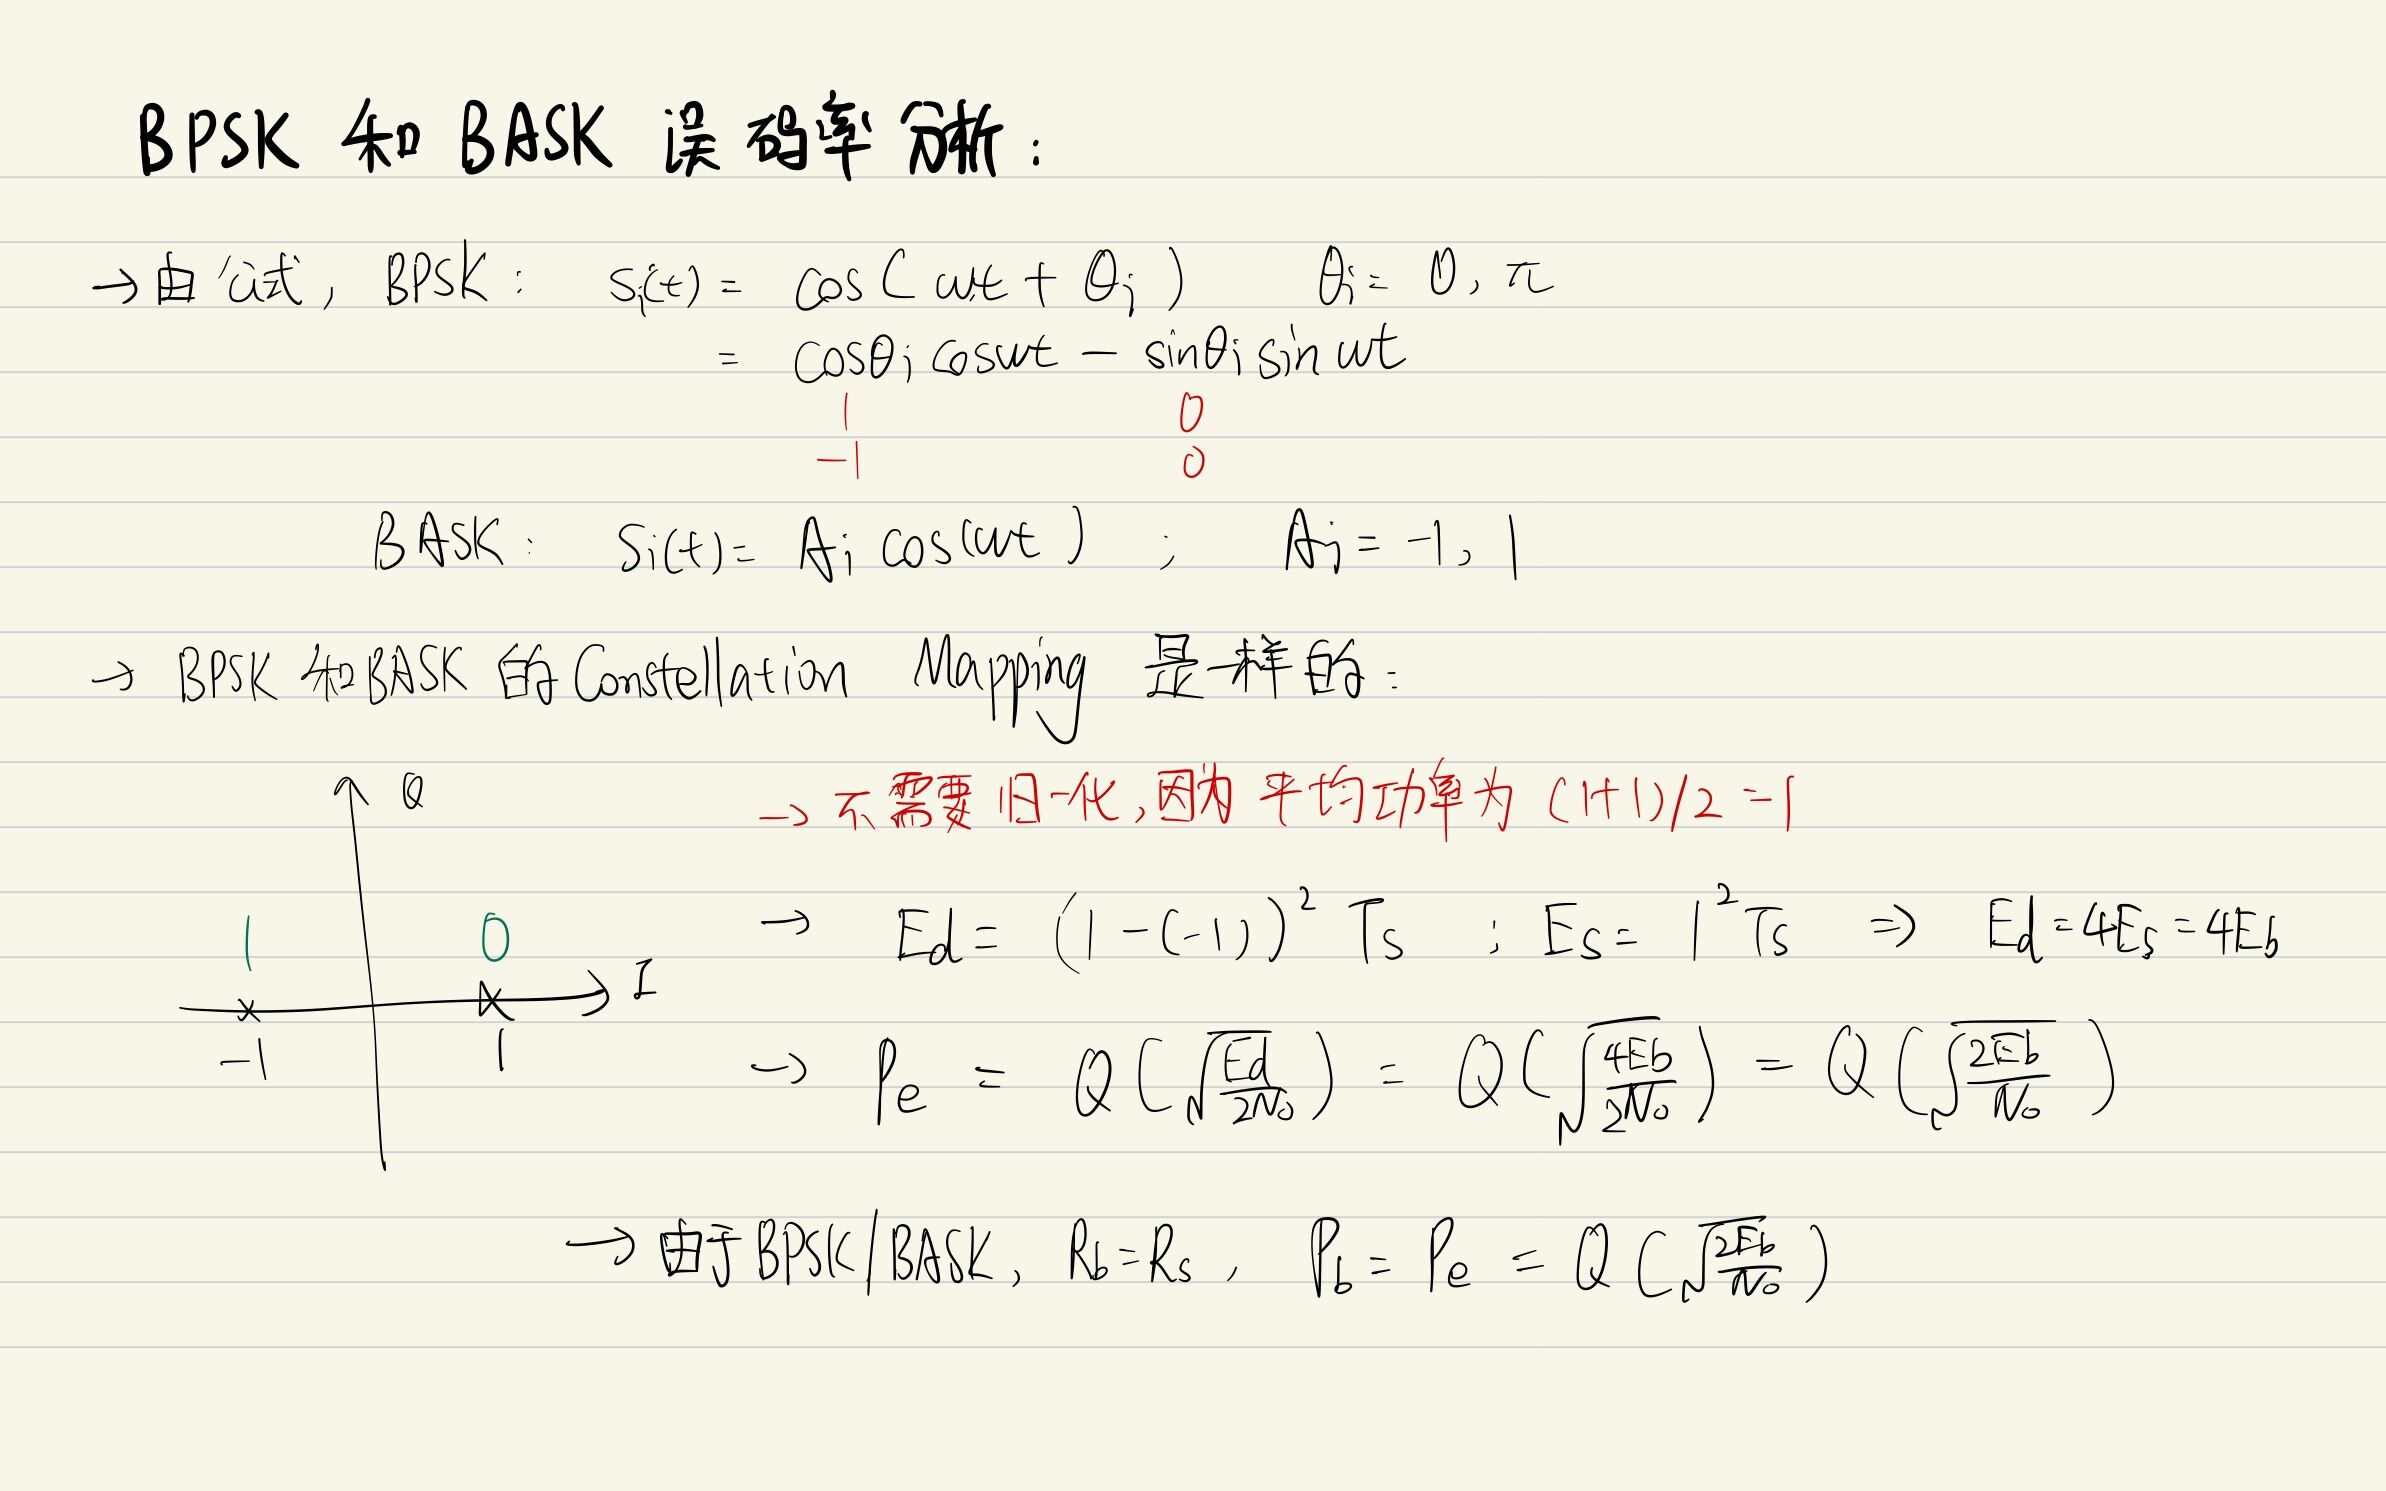 BPSK 和 BASK 误码率分析：
→ 由公式, BPSK: Si(t) = cos(ωt + θi) θi = 0, π
= cosθi cosωt − sinθi sinωt
1 0
-1 0
BASK: Si(t) = Ai cos(ωt) ; Ai = -1, 1
→ BPSK 和BASK 的 Constellation Mapping 是一样的：
Q
→ 不需要归一化, 因为平均功率为 (1+1)/2 = 1
1 0
I
-1 1
→ Ed = (1-(-1))² Ts ; Es = 1² Ts ⇒ Ed = 4Es = 4Eb
→ Pe = Q(√(Ed/2N₀)) = Q(√(4Eb/2N₀)) = Q(√(2Eb/N₀))
→ 由于 BPSK/BASK, Rb = Rs, Pb = Pe = Q(√(2Eb/N₀))